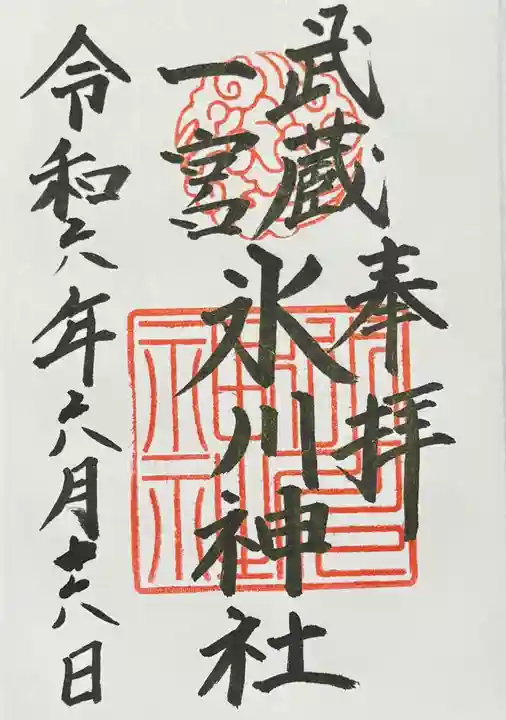 奉拝
武蔵
一宮
氷川神社
令和六年六月十六日